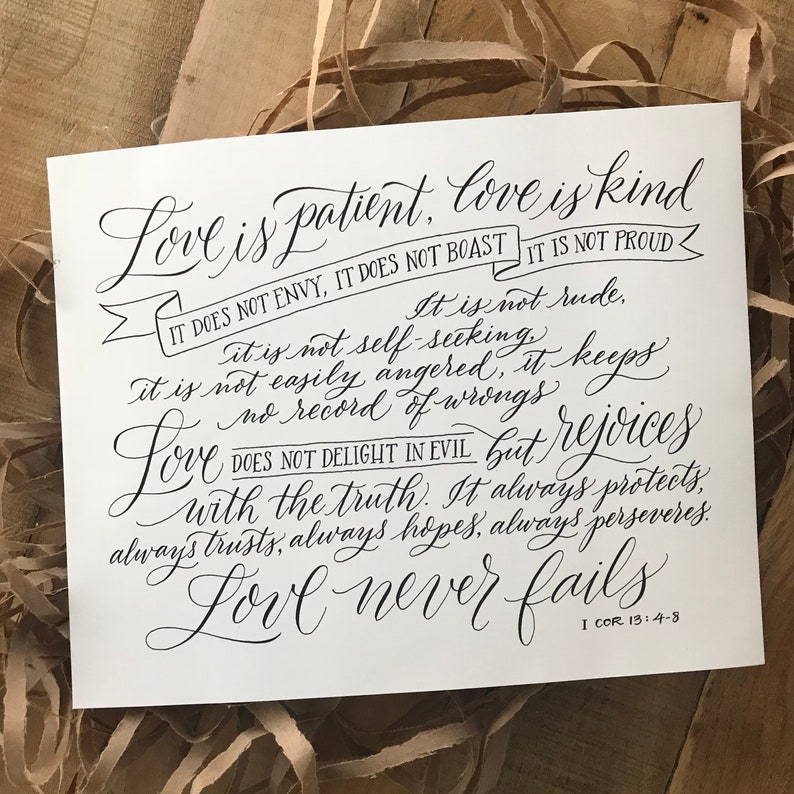 Love is patient, love is kind
IT DOES NOT ENVY, IT DOES NOT BOAST IT IS NOT PROUD
It is not rude,
it is not self-seeking,
it is not easily angered, it keeps
no record of wrongs
Love DOES NOT DELIGHT IN EVIL but rejoices
with the truth. It always protects,
always trusts, always hopes, always perseveres.
Love never fails
I COR 13:4-8